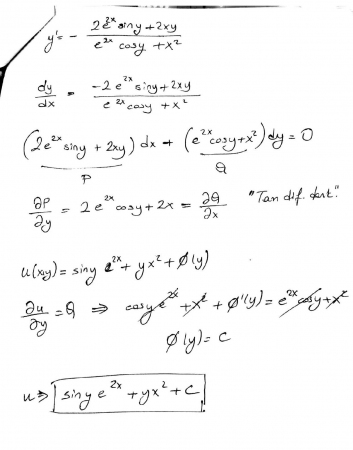 y' = - (2e^{2x} siny + 2xy) / (e^{2x} cosy + x²)
dy/dx = (-2e^{2x} siny + 2xy) / (e^{2x} cosy + x²)
(2e^{2x} siny + 2xy) dx + (e^{2x} cosy + x²) dy = 0
P Q
∂P/∂y = 2e^{2x} cosy + 2x = ∂Q/∂x "Tam dif. denk."
u(x,y) = siny e^{2x} + yx² + Ø(y)
∂u/∂y = Q ⇒ cosy e^{2x} + x² + Ø'(y) = e^{2x} cosy + x²
Ø(y) = c
u ⇒ siny e^{2x} + yx² + c